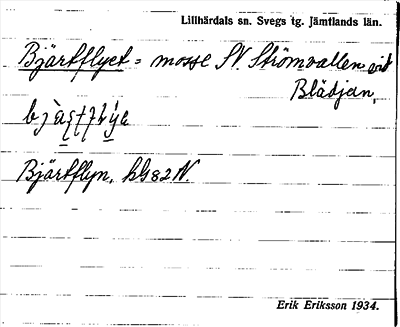 Lillhärdals sn. Svegs tg. Jämtlands län.
Bjärtflyet = mosse N. Strömvallen vid
Blädjan,
Bjärtflyn, hG82N.
Erik Eriksson 1934.